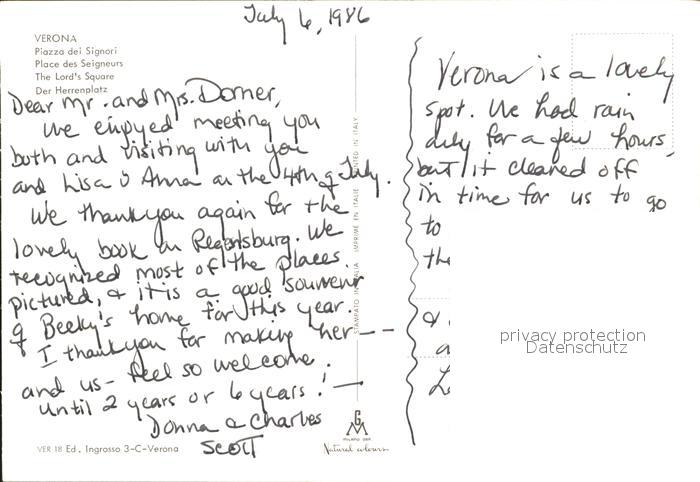 July 6, 1986
VERONA
Piazza dei Signori
Place des Seigneurs
The Lord's Square
Der Herrenplatz
Dear Mr. and Mrs. Dorner,
We enjoyed meeting you
both and visiting with you
and Lisa & Anna on the 4th of July.
We thank you again for the
lovely book on Regensburg. We
recognized most of the places
pictured, & it is a good souvenir
of Becky's home for this year.
I thank you for making her
and us- feel so welcome.
Until 2 years or 6 years!
Donna & Charles
SCOTT
VER 18 Ed. Ingrosso 3-C-Verona
STAMPATO IN ITALIA IMPRIMÉ EN ITALIE PRINTED IN ITALY
Natural colours
Verona is a lovely
spot. We had rain
for a few hours,
but it cleared off
in time for us to go
to
the
&
privacy protection
Datenschutz